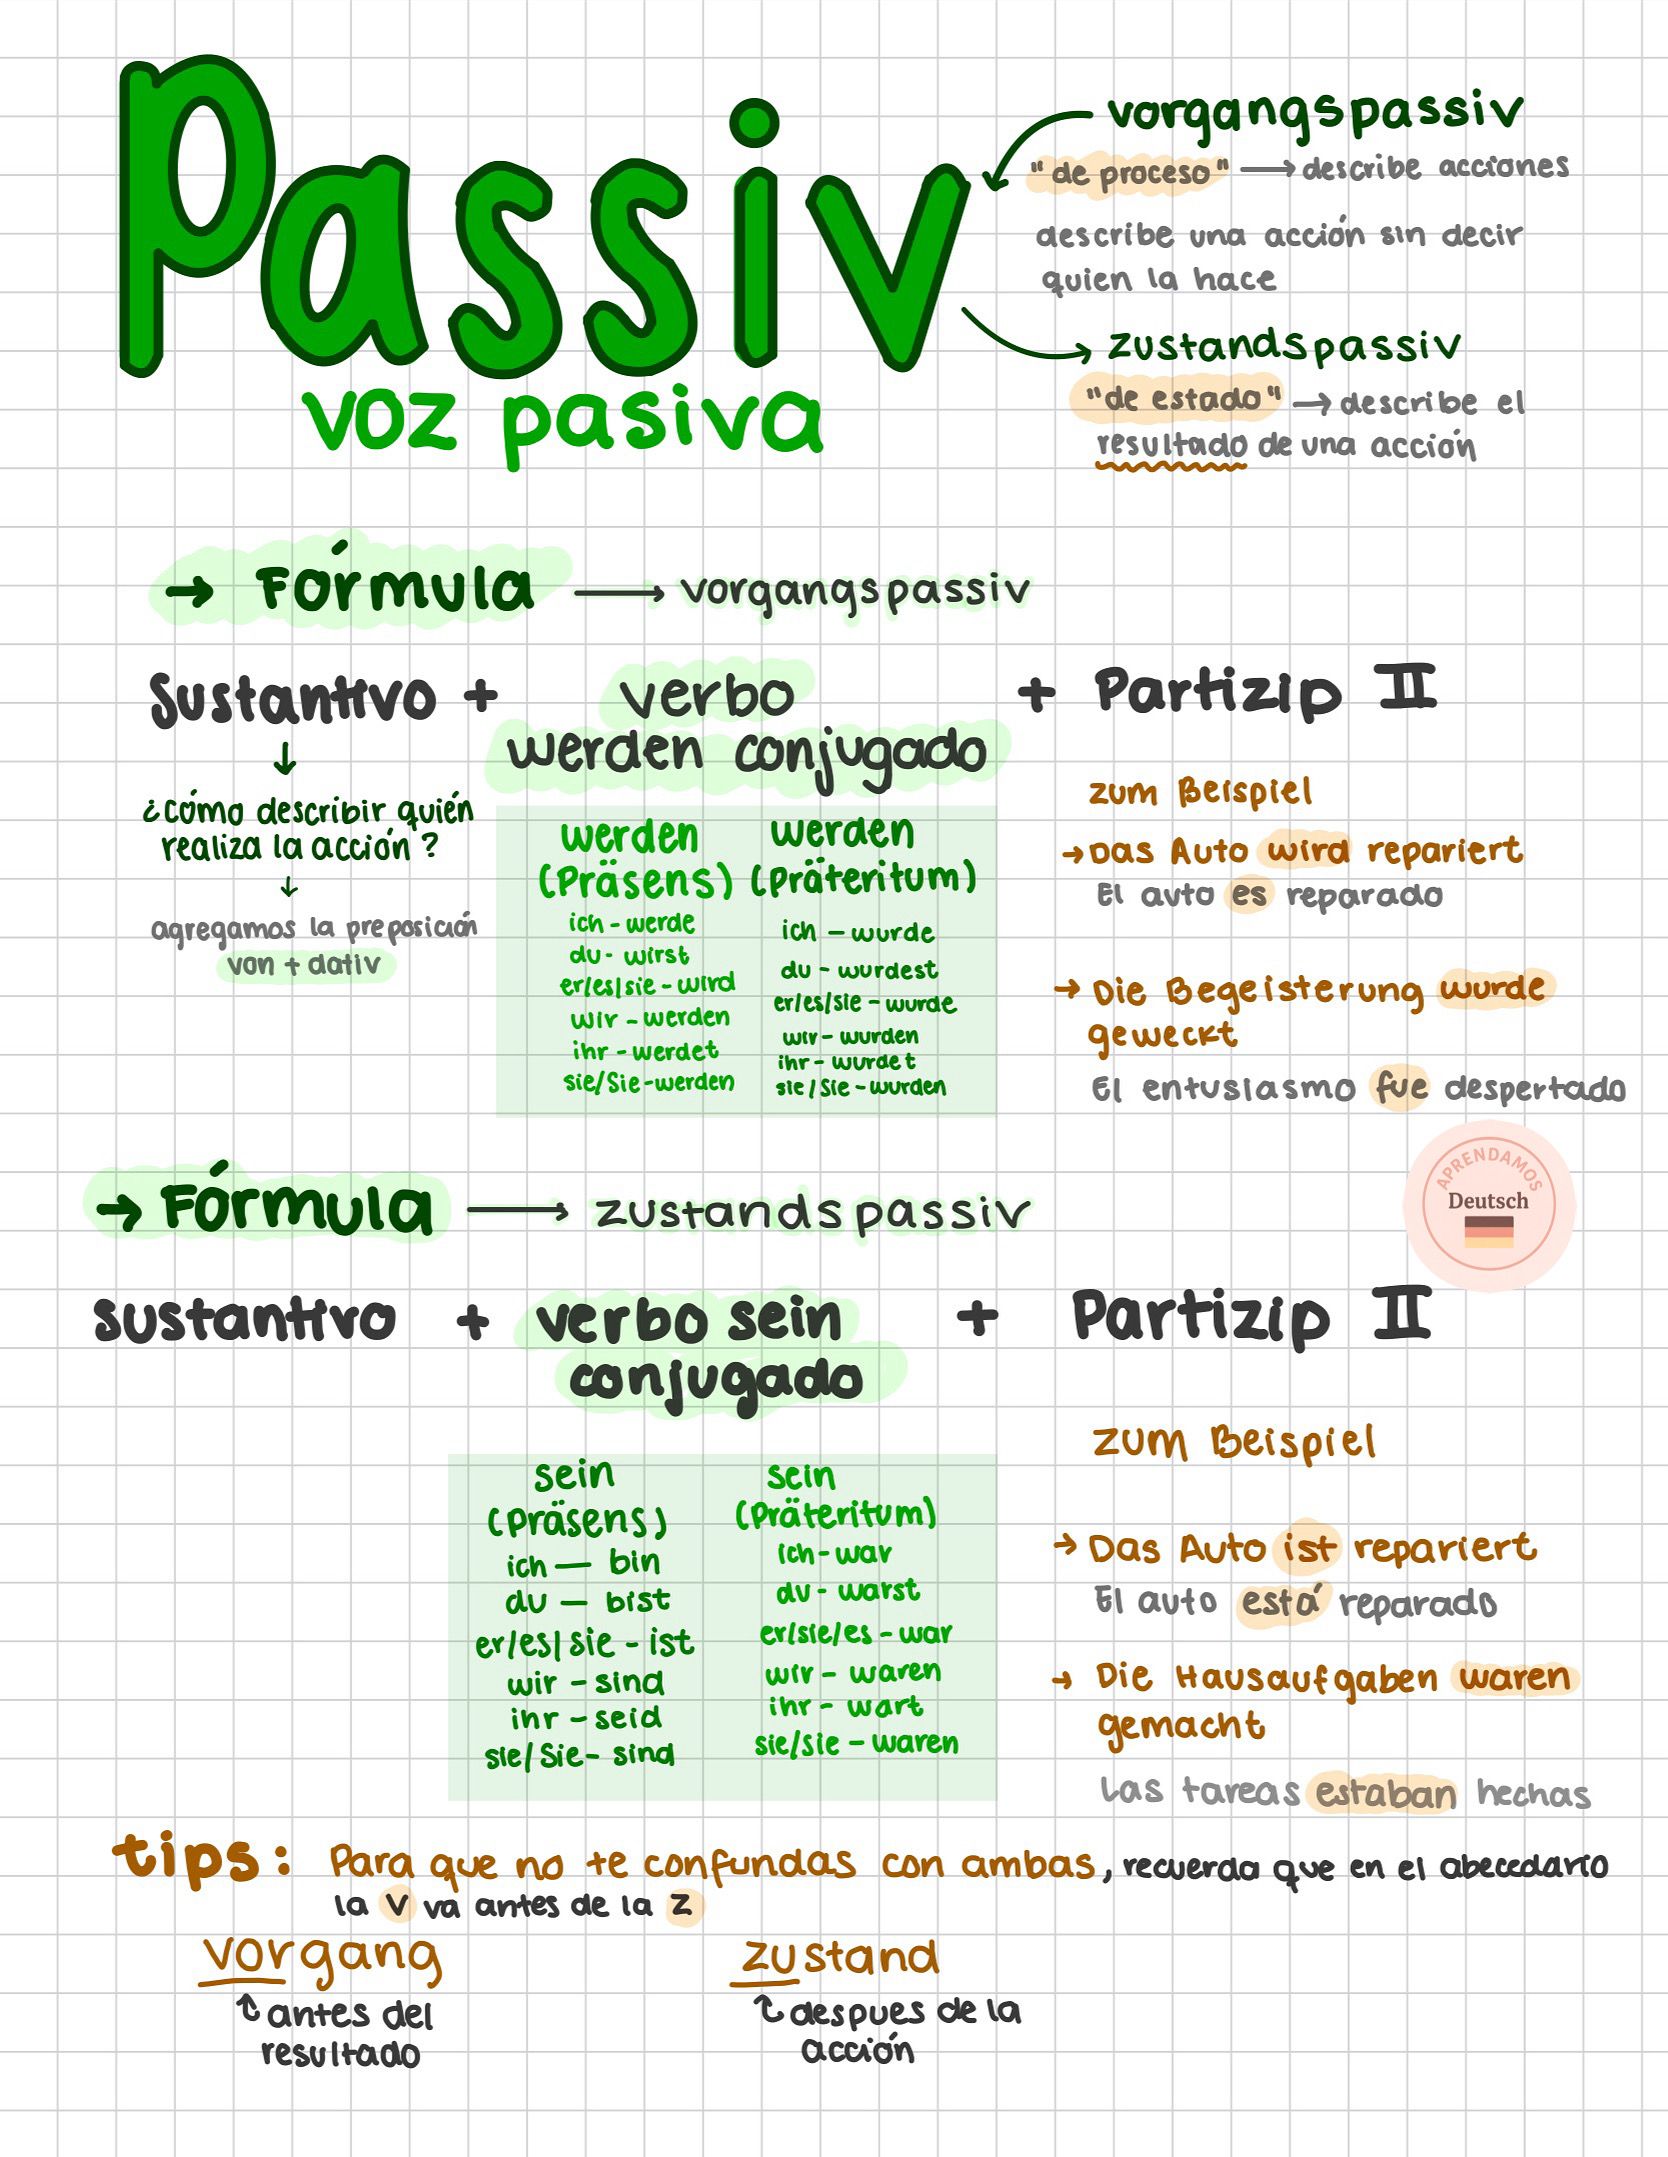 Passiv
voz pasiva
vorgangspassiv
"de proceso" → describe acciones
describe una acción sin decir
quien la hace
zustandspassiv
"de estado" → describe el
resultado de una acción
→ Fórmula → vorgangspassiv
Sustantivo + verbo + Partizip II
werden conjugado
↓
¿cómo describir quién
realiza la acción?
↓
agregamos la preposición
von + dativ
werden
(Präsens)
ich - werde
du - wirst
er/es/sie - wird
wir - werden
ihr - werdet
sie/Sie - werden
werden
(präteritum)
ich - wurde
du - wurdest
er/es/sie - wurde
wir - wurden
ihr - wurdet
sie/Sie - wurden
zum Beispiel
→ Das Auto wird repariert
El auto es reparado
→ Die Begeisterung wurde
geweckt
El entusiasmo fue despertado
APRENDAMOS
Deutsch
→ Fórmula → zustandspassiv
sustantivo + verbo sein + Partizip II
conjugado
sein
(präsens)
ich — bin
du — bist
er/es/sie - ist
wir - sind
ihr - seid
sie/Sie - sind
sein
(Präteritum)
ich - war
du - warst
er/sie/es - war
wir - waren
ihr - wart
sie/sie - waren
zum Beispiel
→ Das Auto ist repariert
El auto está reparado
→ Die Hausaufgaben waren
gemacht
Las tareas estaban hechas
tips: Para que no te confundas con ambas, recuerda que en el abecedario
la v va antes de la z
vorgang
antes del
resultado
zustand
despues de la
acción